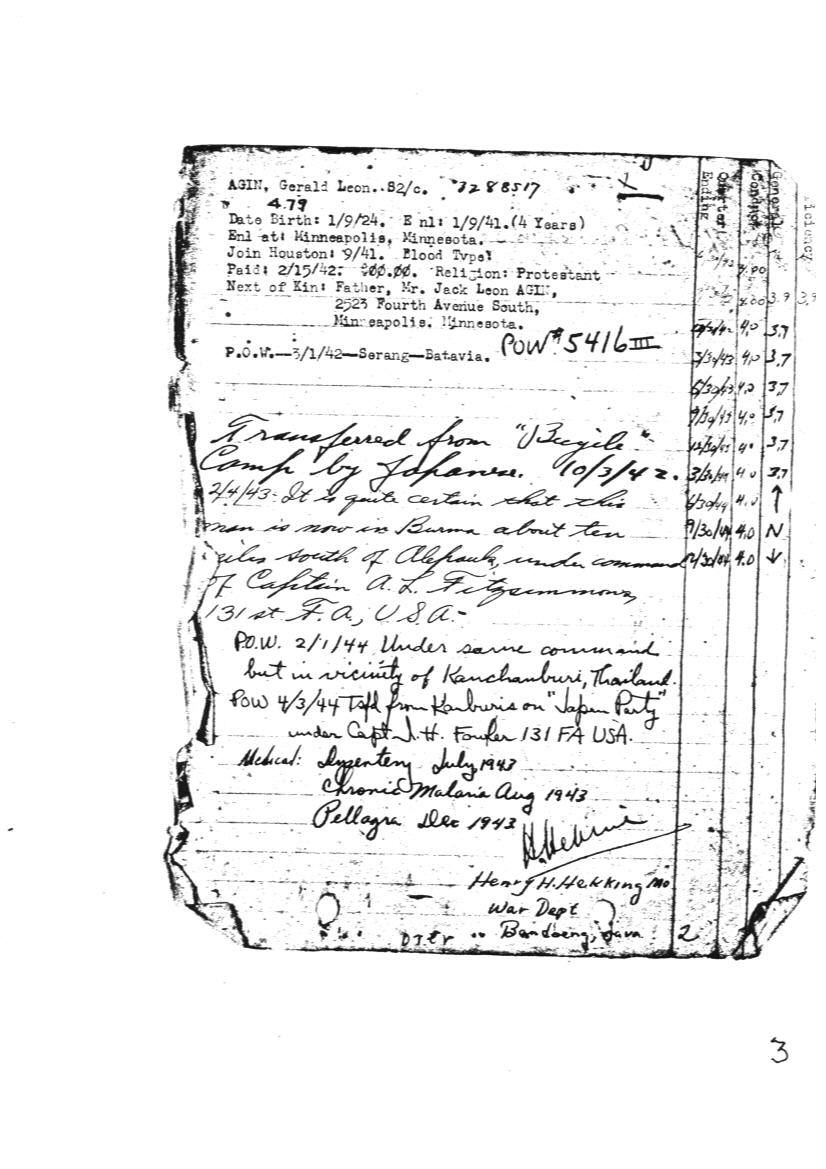 AGIN, Gerald Leon..S2/c. 3288517
4.79
Date Birth: 1/9/24. Enl: 1/9/41.(4 Years)
Enl at: Minneapolis, Minnesota.
Join Houston: 9/41. Blood Type:
Paid: 2/15/42: $00.00. Religion: Protestant
Next of Kin: Father, Mr. Jack Leon AGIN,
2523 Fourth Avenue South,
Minneapolis, Minnesota.
P.O.W.—3/1/42—Serang—Batavia. POW # 5416 III
Transferred from "Bicycle"
Camp by Japanese. 10/3/42.
2/4/43: It is quite certain that this
man is now in Burma about ten
miles south of under command
of Captain A. L. Fitzsimmons,
131 st. F.A., U.S.A.-
P.O.W. 2/1/44 Under same command
but in vicinity of Kanchanburi, Thailand.
POW 4/3/44 Tsfd from Kanburis on "Japan Party"
under Capt. J.H. Fowler 131 FA USA.
Medical: Dysentery July 1943
Chronic Malaria Aug 1943
Pellagra Dec 1943
Henry H. Hekking MD
War Dept
Bandoeng, Java
2
Quarter Ending
Conduct
General
4.00
4.00 3.9 3.9
4.0 3.7
3/30/43 4.0 3.7
6/30/43 4.0 3.7
9/30/43 4.0 3.7
12/30/43 4.0 3.7
3/30/44 4.0 3.7
6/30/44 4.0 ↑
9/30/44 4.0 N
12/30/44 4.0 ↓
3